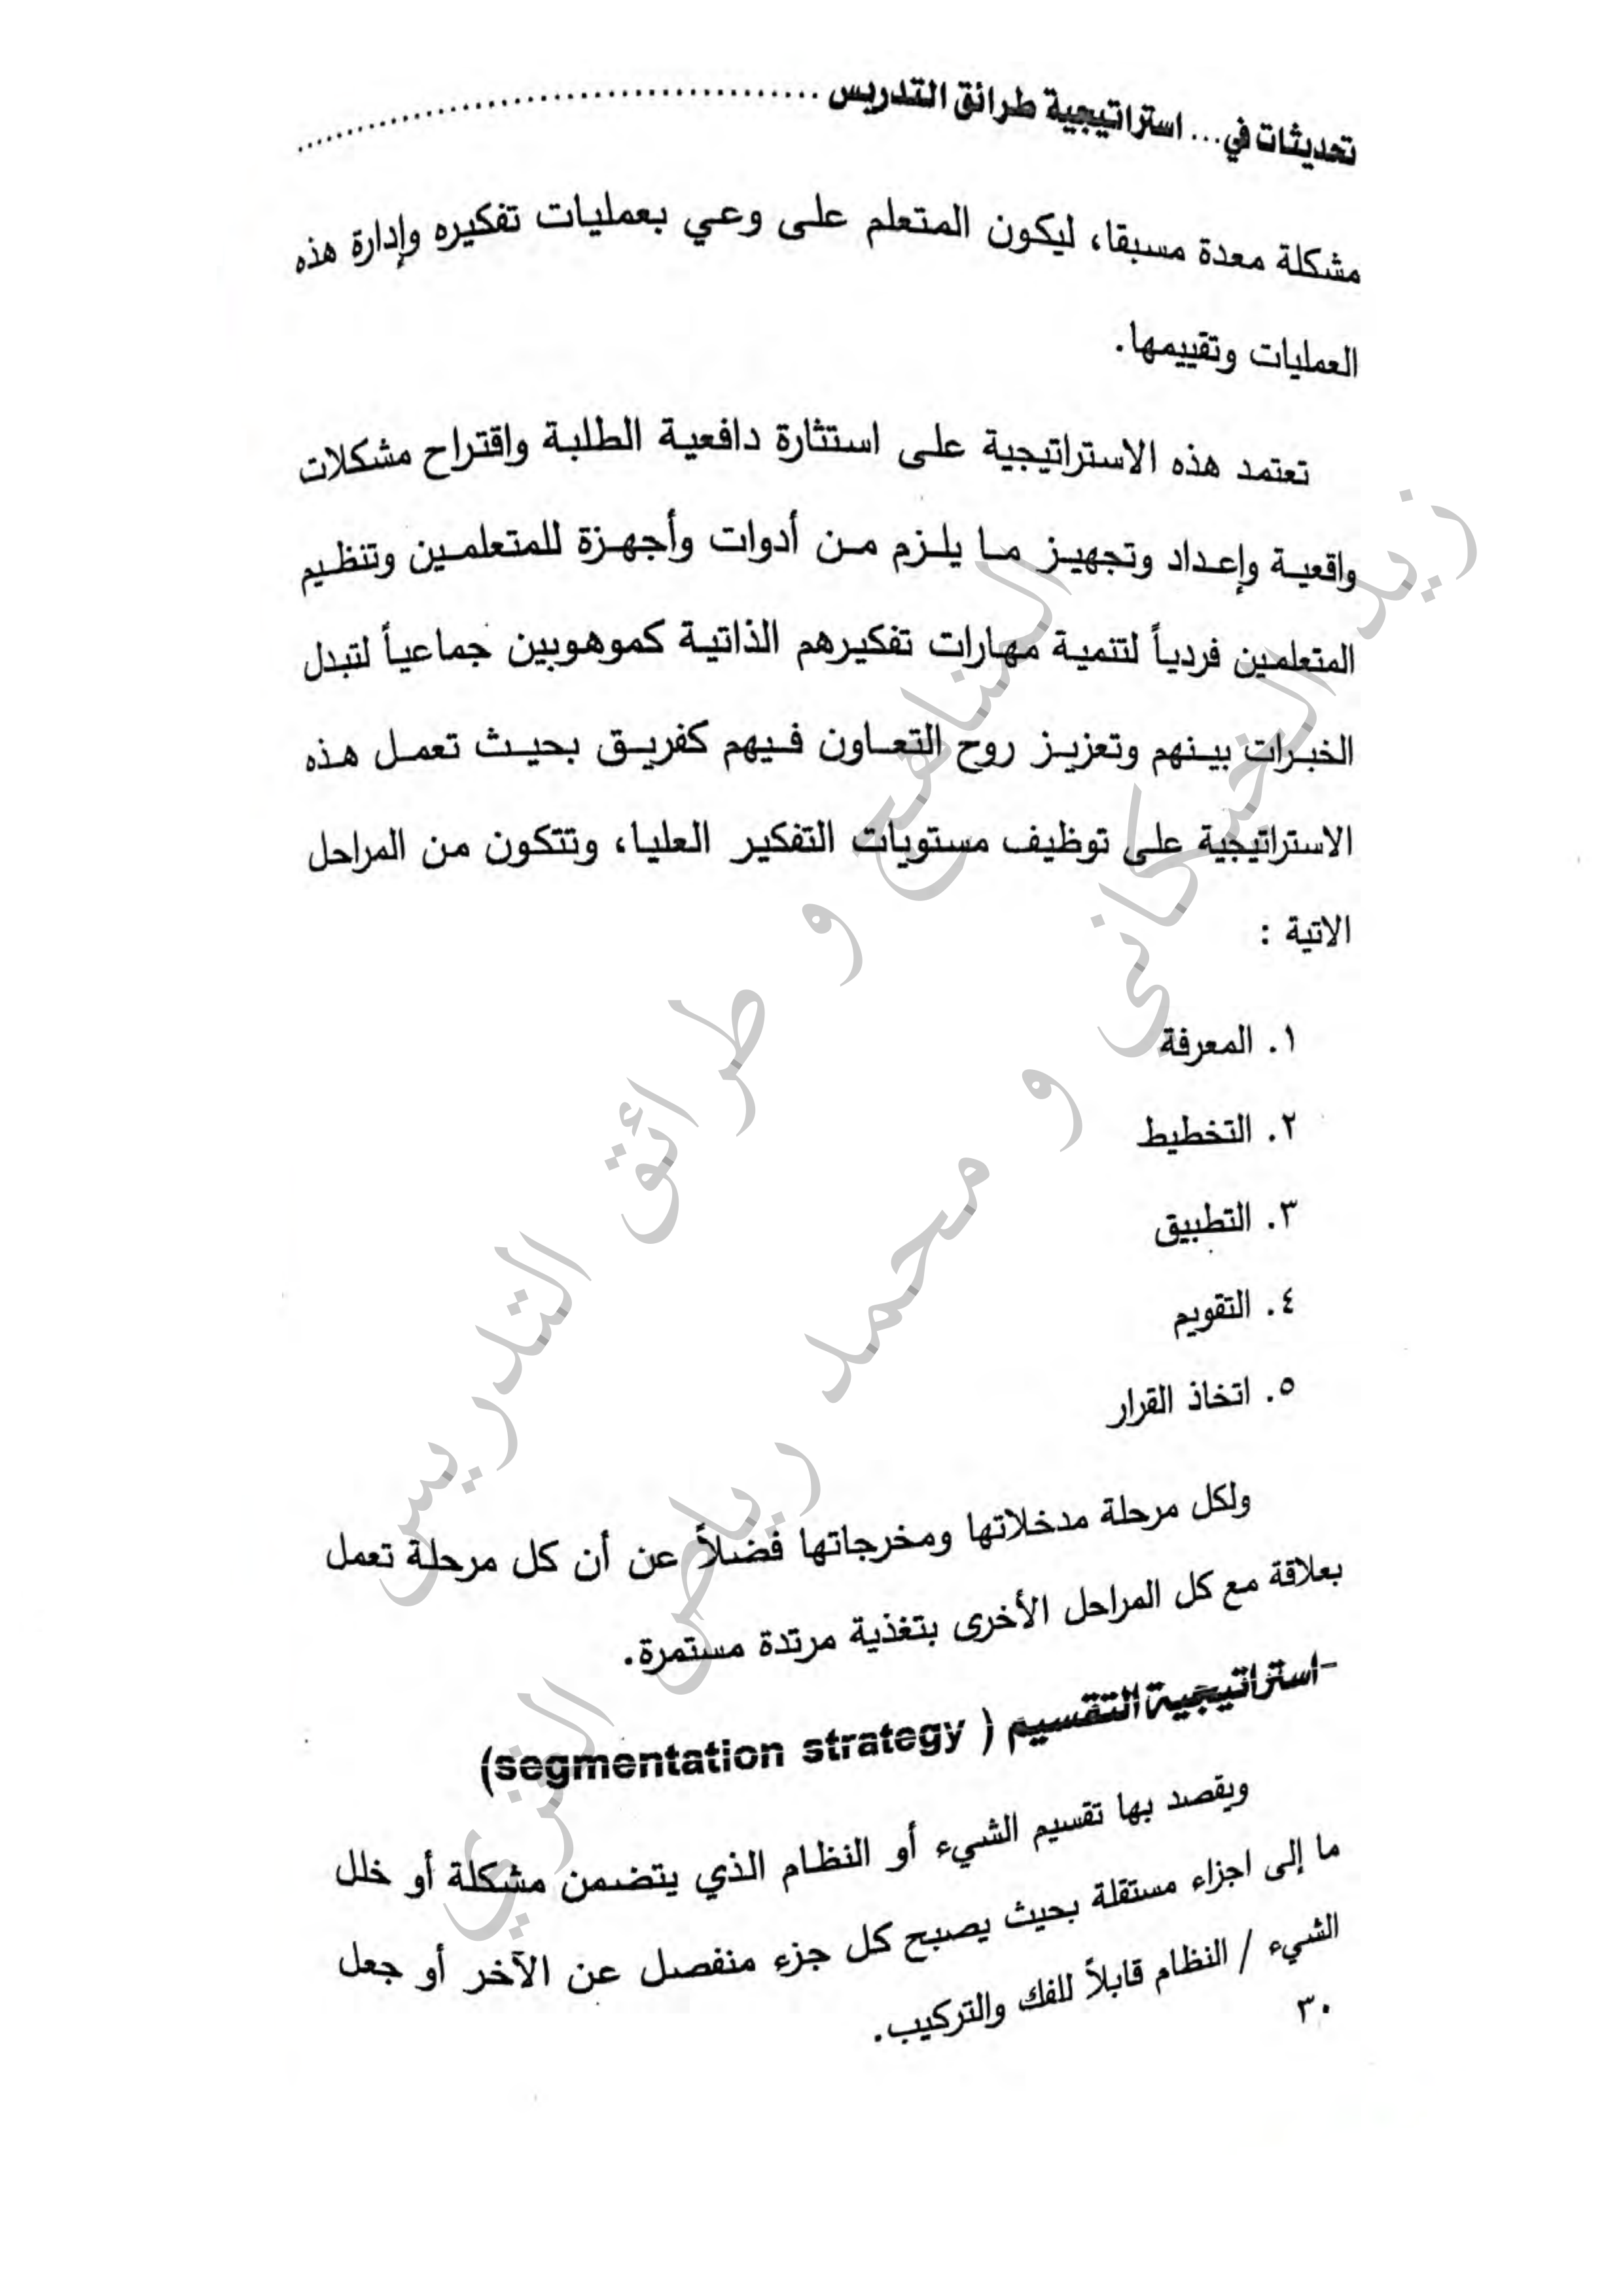 تحديثات في... استراتيجية طرائق التدريس ............................................
مشكلة معدة مسبقا، ليكون المتعلم على وعي بعمليات تفكيره وإدارة هذه
العمليات وتقييمها.
تعتمد هذه الاستراتيجية على استثارة دافعية الطلبة واقتراح مشكلات
واقعية وإعداد وتجهيز ما يلزم من أدوات وأجهزة للمتعلمين وتنظيم
المتعلمين فردياً لتنمية مهارات تفكيرهم الذاتية كموهوبين جماعياً لتبدل
الخبرات بينهم وتعزيز روح التعاون فيهم كفريق بحيث تعمل هذه
الاستراتيجية على توظيف مستويات التفكير العليا، وتتكون من المراحل
الاتية :
١. المعرفة
٢. التخطيط
٣. التطبيق
٤. التقويم
٥. اتخاذ القرار
ولكل مرحلة مدخلاتها ومخرجاتها فضلاً عن أن كل مرحلة تعمل
بعلاقة مع كل المراحل الأخرى بتغذية مرتدة مستمرة.
-استراتيجية التقسيم ( segmentation strategy)
ويقصد بها تقسيم الشيء أو النظام الذي يتضمن مشكلة أو خلل
ما إلى اجزاء مستقلة بحيث يصبح كل جزء منفصل عن الآخر أو جعل
الشيء / النظام قابلاً للفك والتركيب.
٣٠
المناهج و طرائق التدريس
زيد الخيكاني و محمد رياض الثري